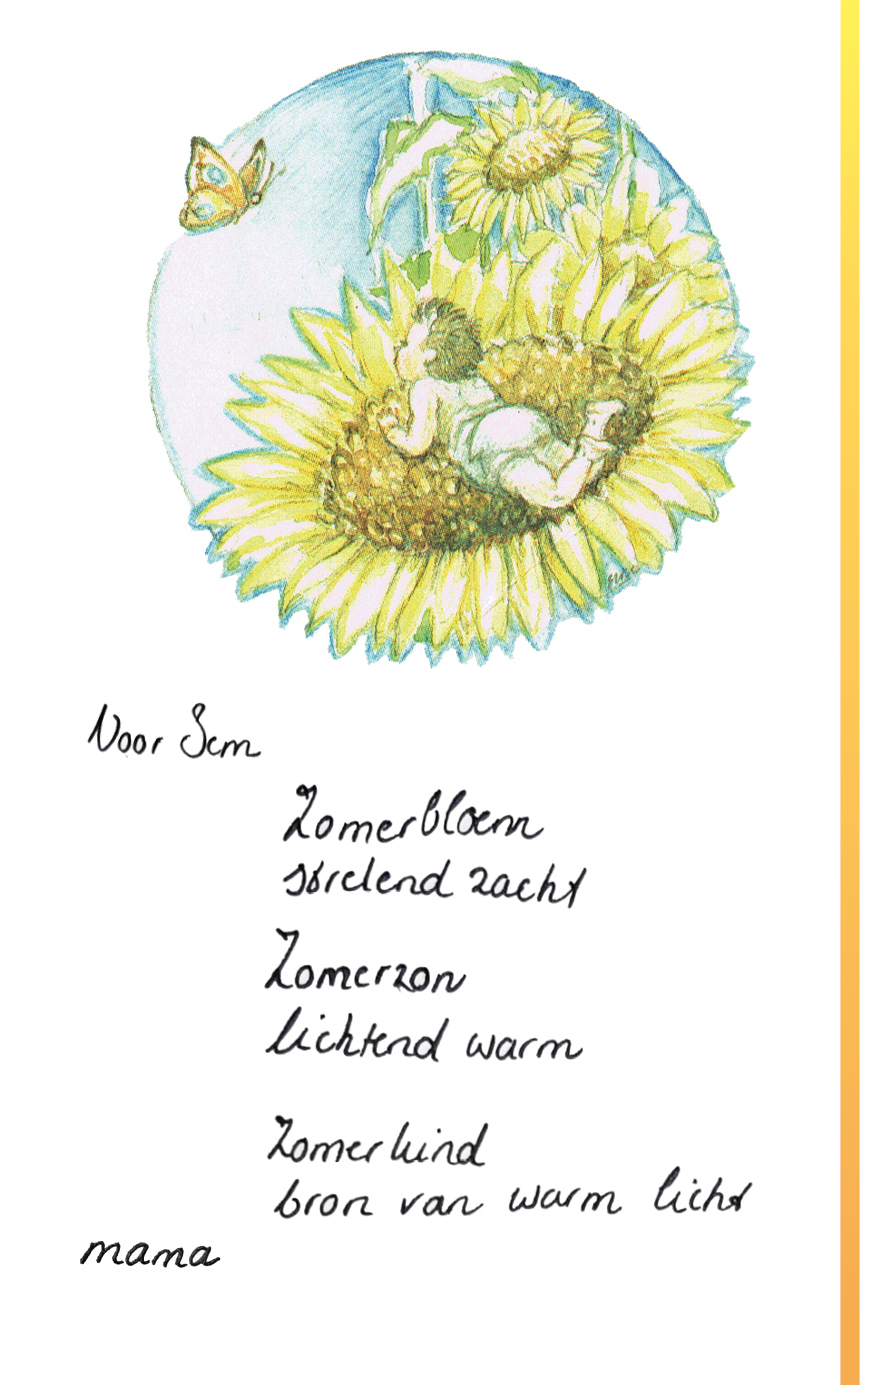 Voor Sem
Zomerbloem
strelend zacht
Zomerzon
lichtend warm
Zomerkind
bron van warm licht
mama